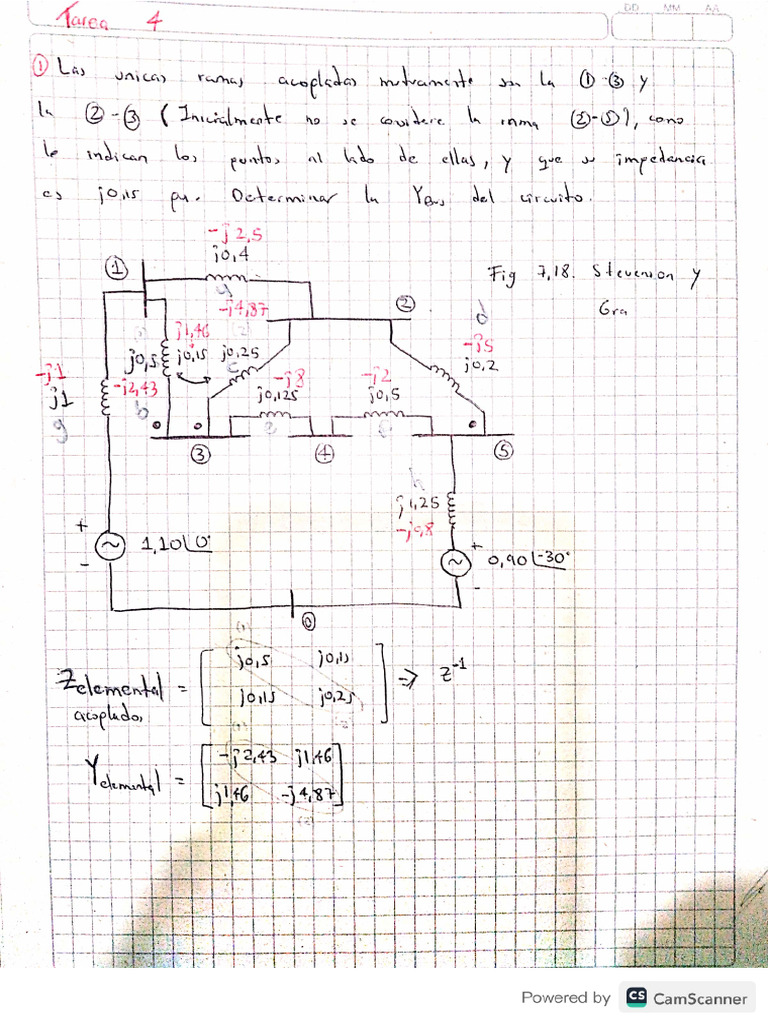 DD MM AA
Tarea 4
① Las unicas ramas acopladas mutuamente son la ①-③ y
la ②-③ (Inicialmente no se considere la rama ②-⑤), como
le indican los puntos al lado de ellas, y que su impedancia
es j0,15 pu. Determinar la YBus del circuito.
-j2,5
j0,4
a
①
Fig 7,18. Stevenson y
Gra
-j4,87
②
d
j1,46
j0,5
j0,15
j0,25
c
-j5
j0,2
-j1
j1
g
-j2,43
b
-j8
j0,125
e
-j2
j0,5
f
③
④
⑤
h
j1,25
-j0,8
+
1,10∟0°
-
+
0,90∟-30°
-
⓪
(1)
Zelemental = [ j0,5 j0,15 ] ⇒ z-1
acoplados j0,15 j0,25
(2)
(1)
Yelemental = [ -j2,43 j1,46 ]
j1,46 -j4,87
(2)
Powered by CS CamScanner